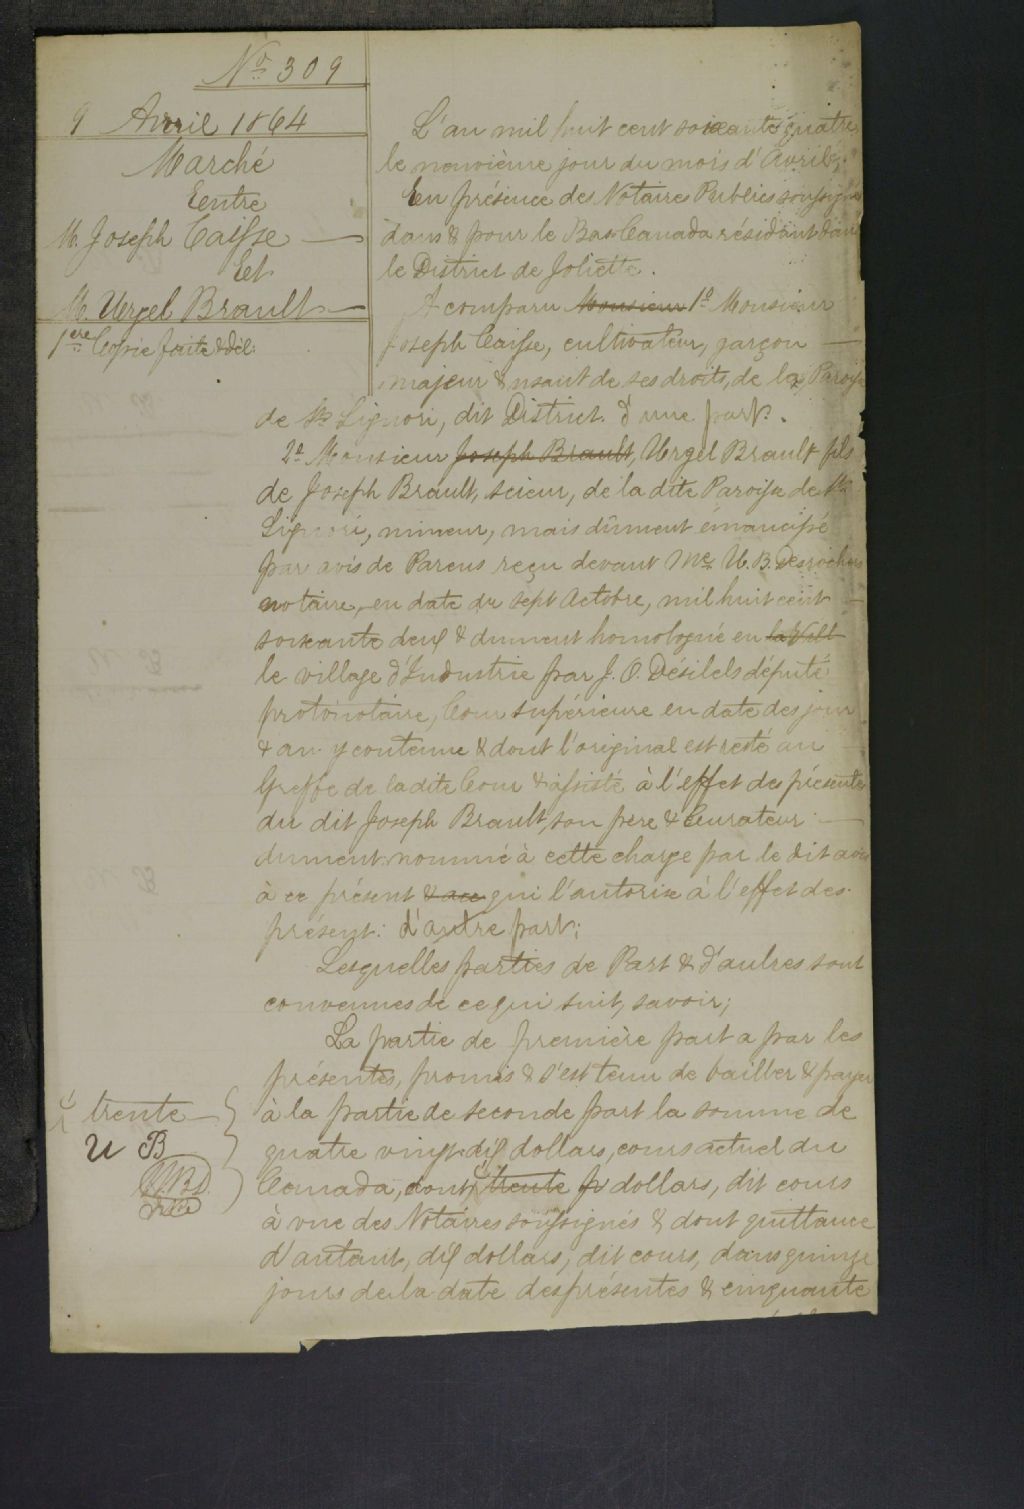 No. 309
9 Avril 1864
Marché
Entre
M. Joseph Caisse
Et
M. Urgel Brault
1ere Copie faite & dél:
L'an mil huit cent soixante quatre
le neuvième jour du mois d'Avril,
En présence des Notaires Publics soussignés
dans & pour le Bas-Canada résidant dans
le District de Joliette.
A comparu Monsieur 1o Monsieur
Joseph Caisse, cultivateur, garçon
majeur & usant de ses droits, de la Paroisse
de St. Liguori, dit District. d'une part.
2o Monsieur Joseph Brault, Urgel Brault fils
de Joseph Brault, scieur, de la dite Paroisse de St.
Liguori, mineur, mais dûment émancipé
par avis de Parens reçu devant Me. U. B. Desrochers
notaire, en date du sept Octobre, mil huit cent
soixante deux & dument homologué en la Vill
le village d'Industrie par J. O. Désilets député
protonotaire, Cour Supérieure en date des jour
& an y contenue & dont l'original est resté au
Greffe de la dite Cour & assisté à l'effet des présentes
du dit Joseph Brault, son père & Curateur
dument nommé à cette charge par le dit avis
à ce présent & acc qui l'autorise à l'effet des
présent: d'autre part;
Lesquelles parties de Part & d'autres sont
convenues de ce qui suit, savoir;
La partie de première part a par les
présentes, promis & s'est tenu de bailler & payer
à la partie de seconde part la somme de
quatre vingt dix dollars, cours actuel du
Canada, dont trente dollars, dit cours
à vue des Notaires soussignés & dont quittance
d'autant, dix dollars, dit cours, dans quinze
jours de la date des présentes & cinquante
trente
U B